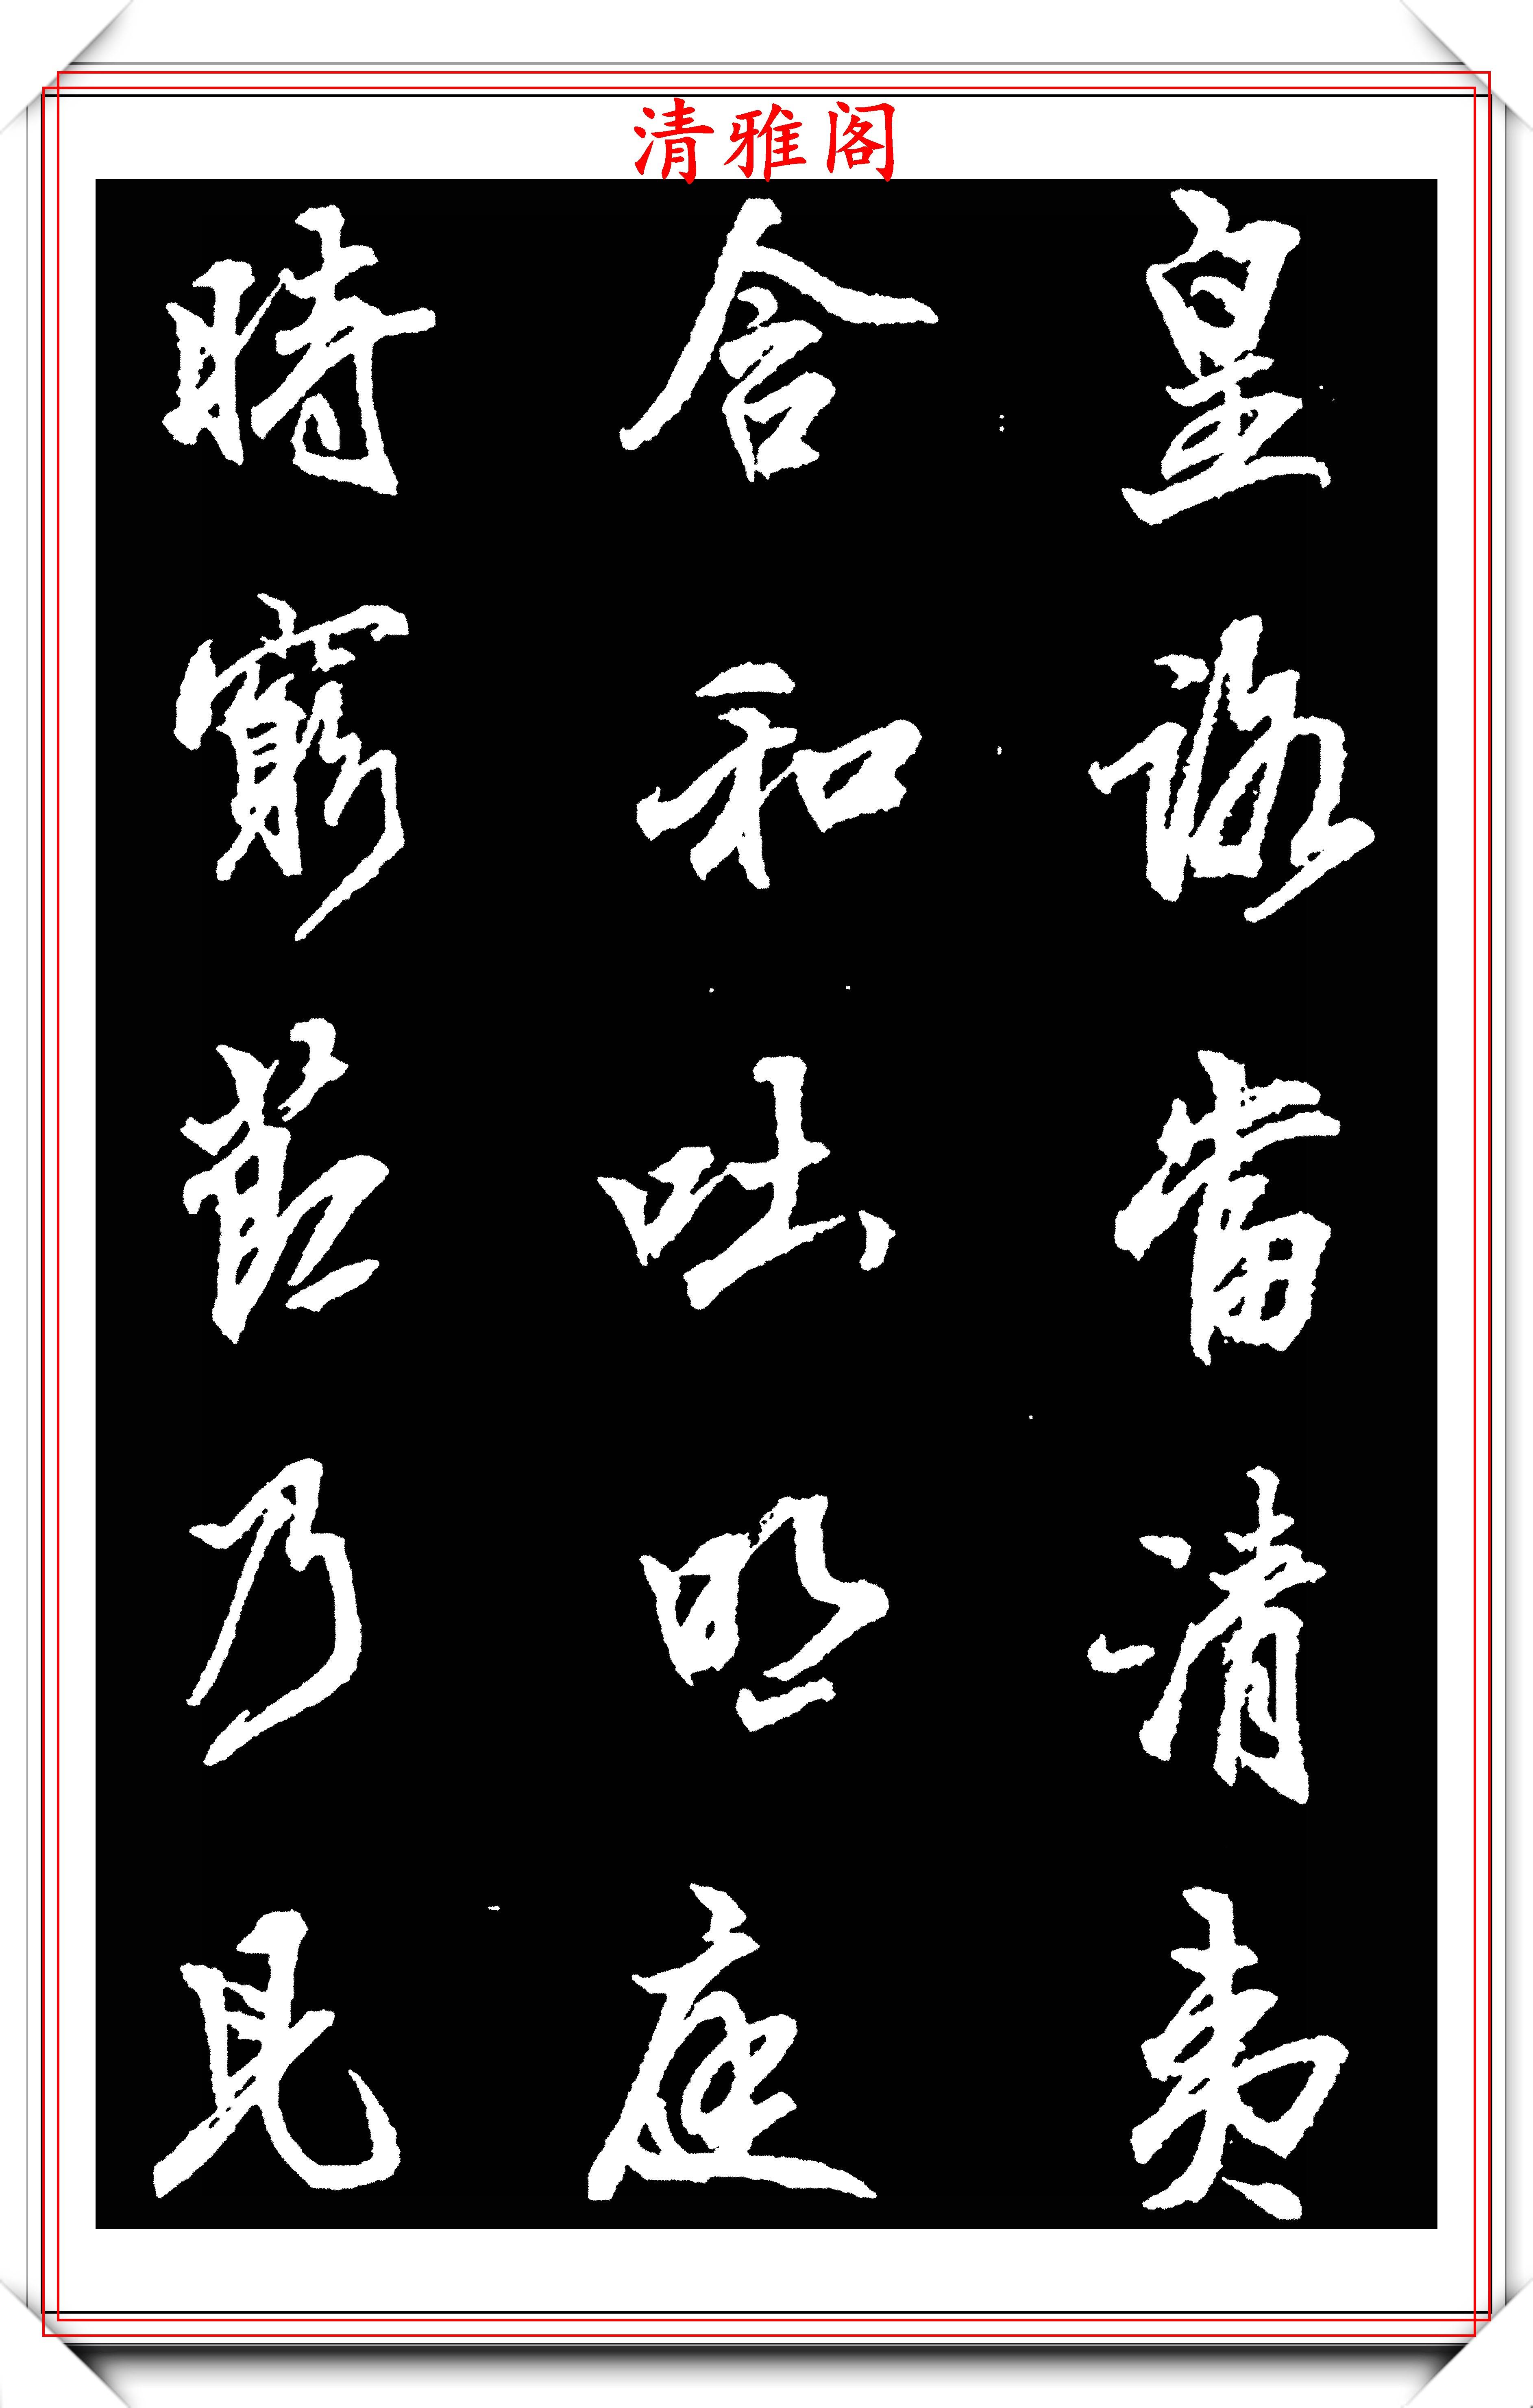 清雅阁
皇路當清夷
含和吐明庭
時窮節乃見